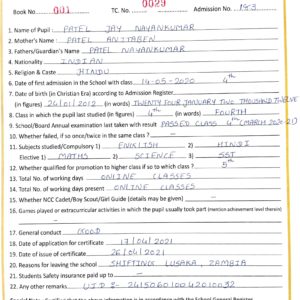 Book No. 001 TC. No. 0029 Admission No. 183
1. Name of pupil PATEL JAY NAYANKUMAR
2. Mother's Name PATEL ANITABEN
3. Fathers/Guardian's Name PATEL NAYANKUMAR
4. Nationality INDIAN
5. Religion & Caste HINDU
6. Date of first admission in the School with class 14-05-2020 4th
7. Date of birth (in Christian Era) according to Admission Register
(in figures) 24/01/2012 (in words) TWENTY FOUR JANUARY TWO THOUSAND TWELVE
8. Class in which the pupil last studied (in figures) 4th (in words) FOURTH
9. School/Board Annual examination last taken with result PASSED CLASS 4th (MARCH 2020-21)
10. Whether failed, if so once/twice in the same class -
11. Subjects studied/Compulsory 1) ENGLISH 2) HINDI
Elective 1) MATHS 2) SCIENCE 3) SST
12. Whether qualified for promotion to higher class if so to which class ? 5th
13. Total No. of working days ONLINE CLASSES
14. Total No. of working days present ONLINE CLASSES
15. Whether NCC Cadet/Boy Scout/Girl Guide (details may be given) -
16. Games played or extracurricular activities in which the pupil usually took part (mention achievement level therein)
17. General conduct GOOD
18. Date of application for certificate 17/04/2021
19. Date of issue of certificate 26/04/2021
20. Reasons for leaving the school SHIFTING LUSAKA, ZAMBIA
21. Students Safety insurance paid up to -
22. Any other remarks UID :- 241506010042010032